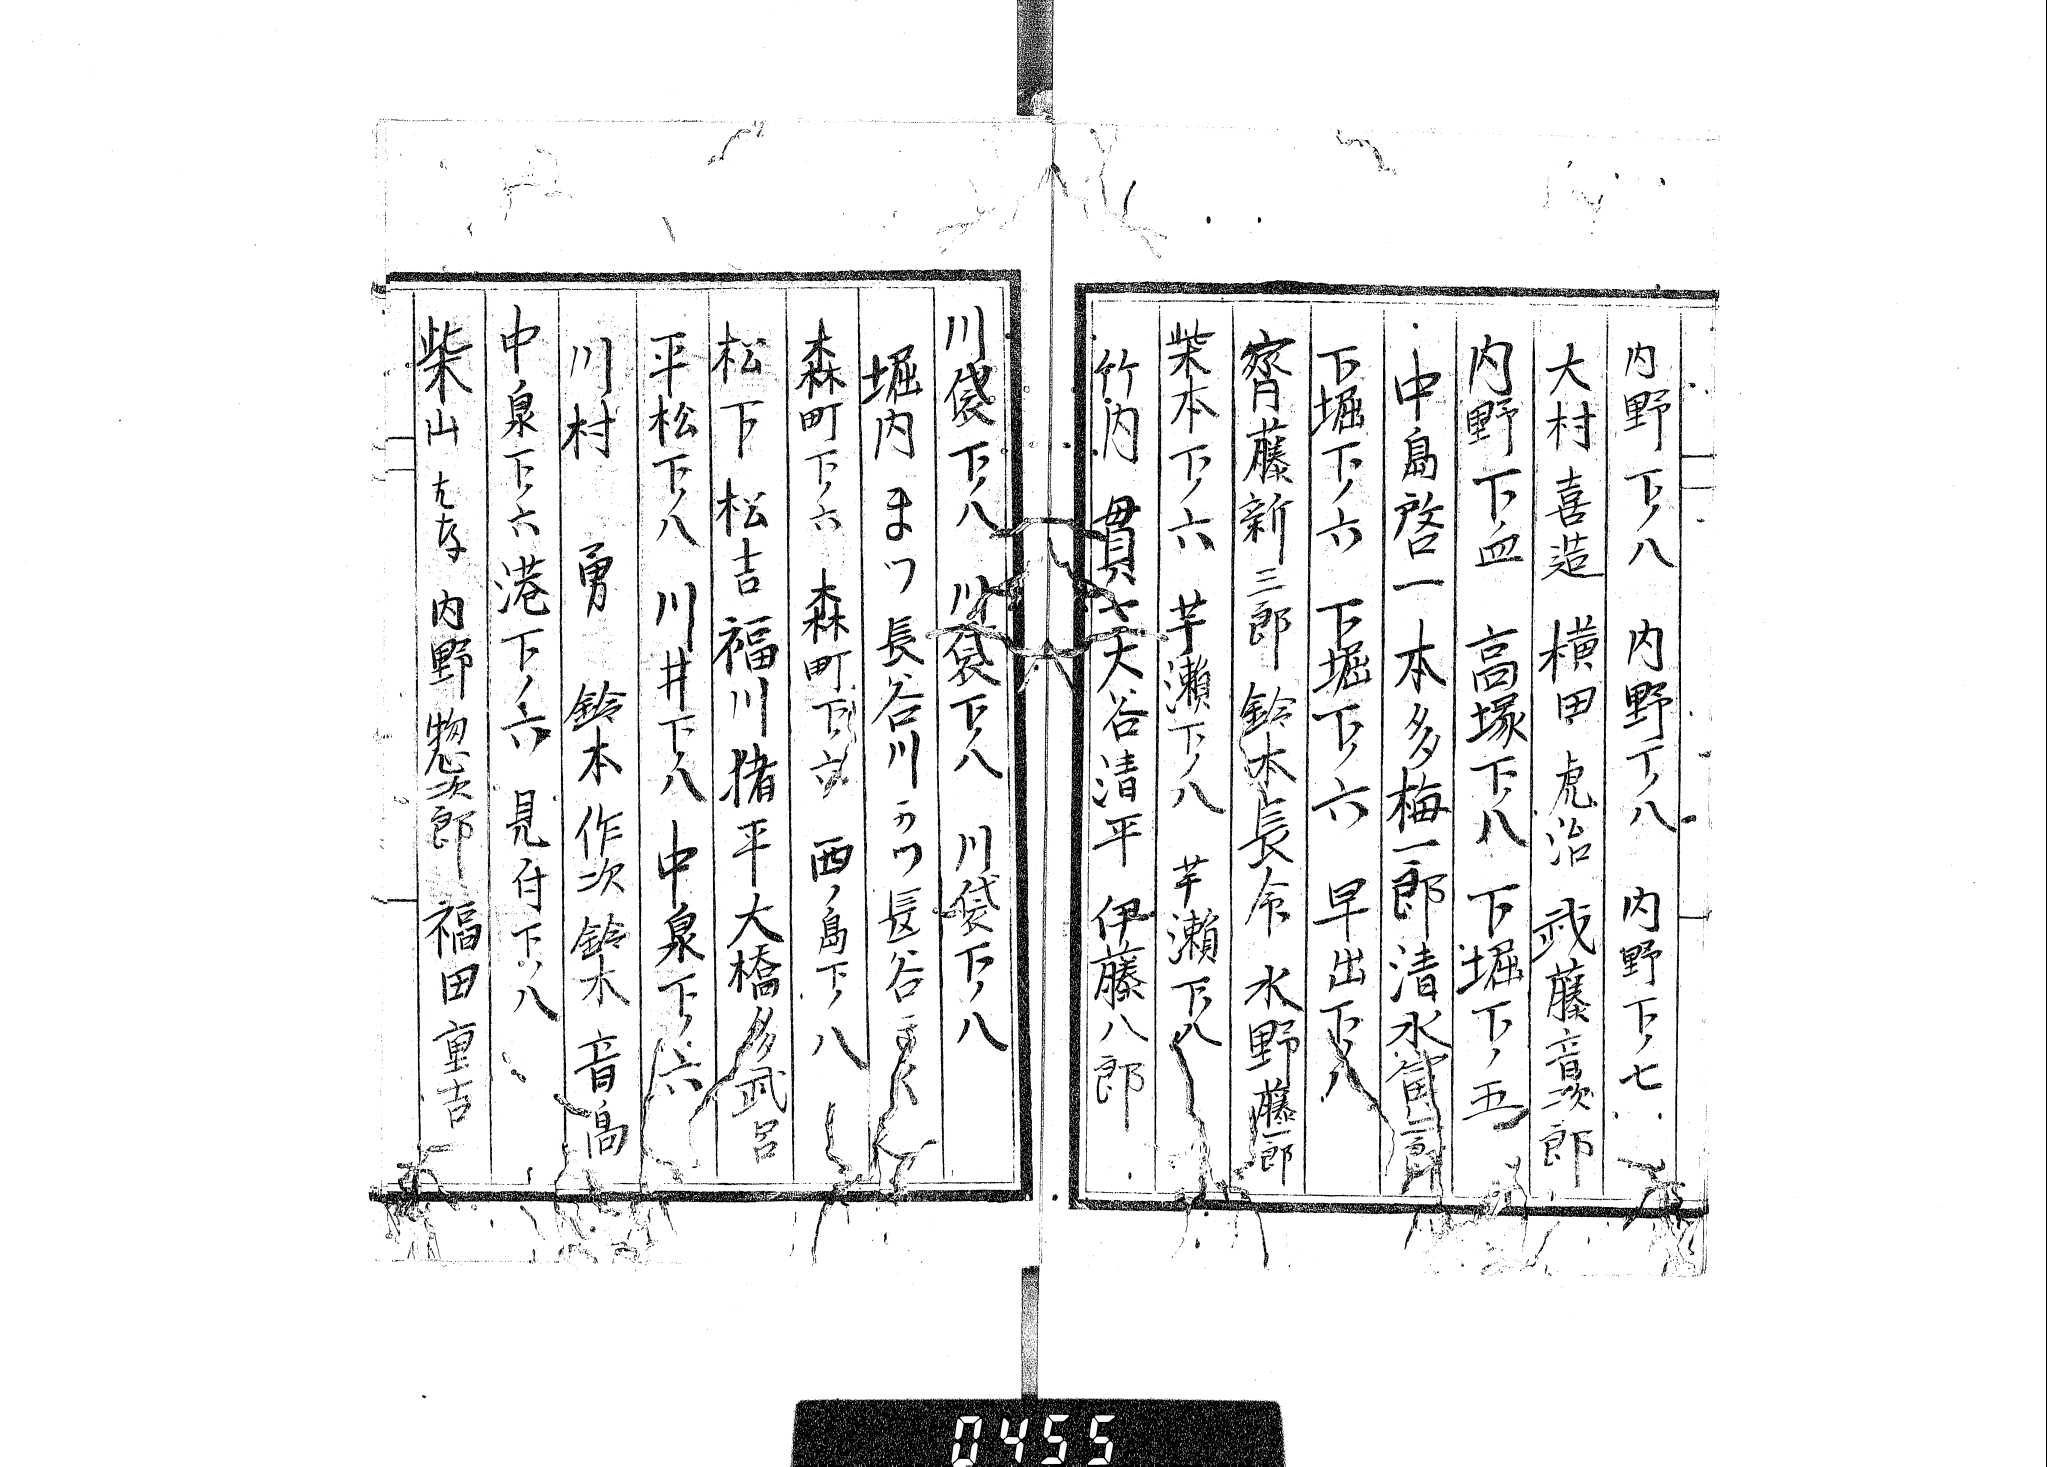 内野下ノ八 内野下ノ八 内野下ノ七
大村喜造 横田虎治 武藤音次郎
内野下四 高塚下ノ八 下堀下ノ五
中島啓一 本多梅一郎 清水
下堀下ノ六 下堀下ノ六 早出下ノ八
齊藤新三郎 鈴木長令 水野藤一郎
柴本下ノ六 芋瀬下ノ八 芋瀬下ノ八
竹内貫 大谷清平 伊藤八郎
川袋下ノ八 川袋下ノ八 川袋下ノ八
堀内まつ 長谷川かつ 長谷
森町下ノ六 森町下ノ六 西ノ島下ノ八
松下松吉 福川猪平 大橋多武呂
平松下ノ八 川井下ノ八 中泉下ノ六
川村勇 鈴木作次 鈴木音
中泉下ノ六 港下ノ六 見付下ノ八
柴山 内野惣次郎 福田重吉
0455